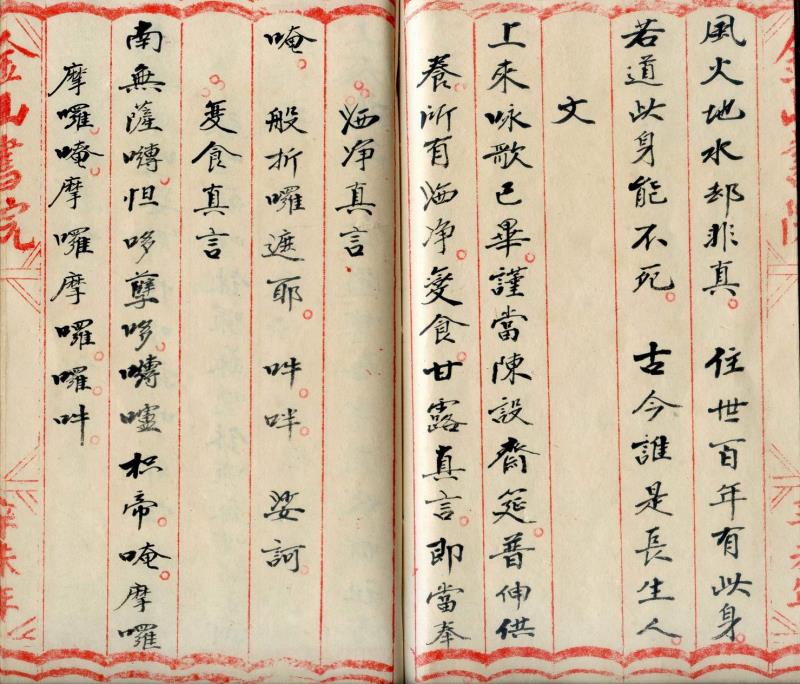 風火地水却非真。 住世百年有此身。
若道此身能不死。 古今誰是長生人。
文
上來咏歌已畢。謹當陳設斋筵。普伸供
養。所有洒净。变食。甘露真言。即當奉
洒净真言
唵 般折囉遮耶。 吽吽 娑訶
变食真言
南無薩嚩怛哆孽哆嚩嚧枳帝。唵摩囉
摩囉。唵摩囉摩囉囉吽
金山書院
未年